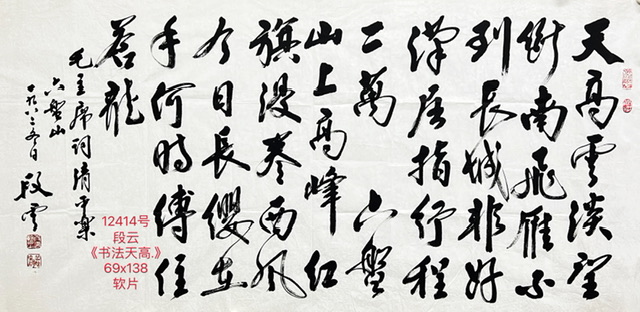 天高雲淡望
断南飛雁不
到長城非好
漢屈指行程
二萬 六盤
山上高峰紅
旗漫卷西風
今日長纓在
手何時縛住
蒼龍
毛主席詞清平樂
六盤山
一九八
段雲
12414号
段云
《书法天高.》
69x138
软片